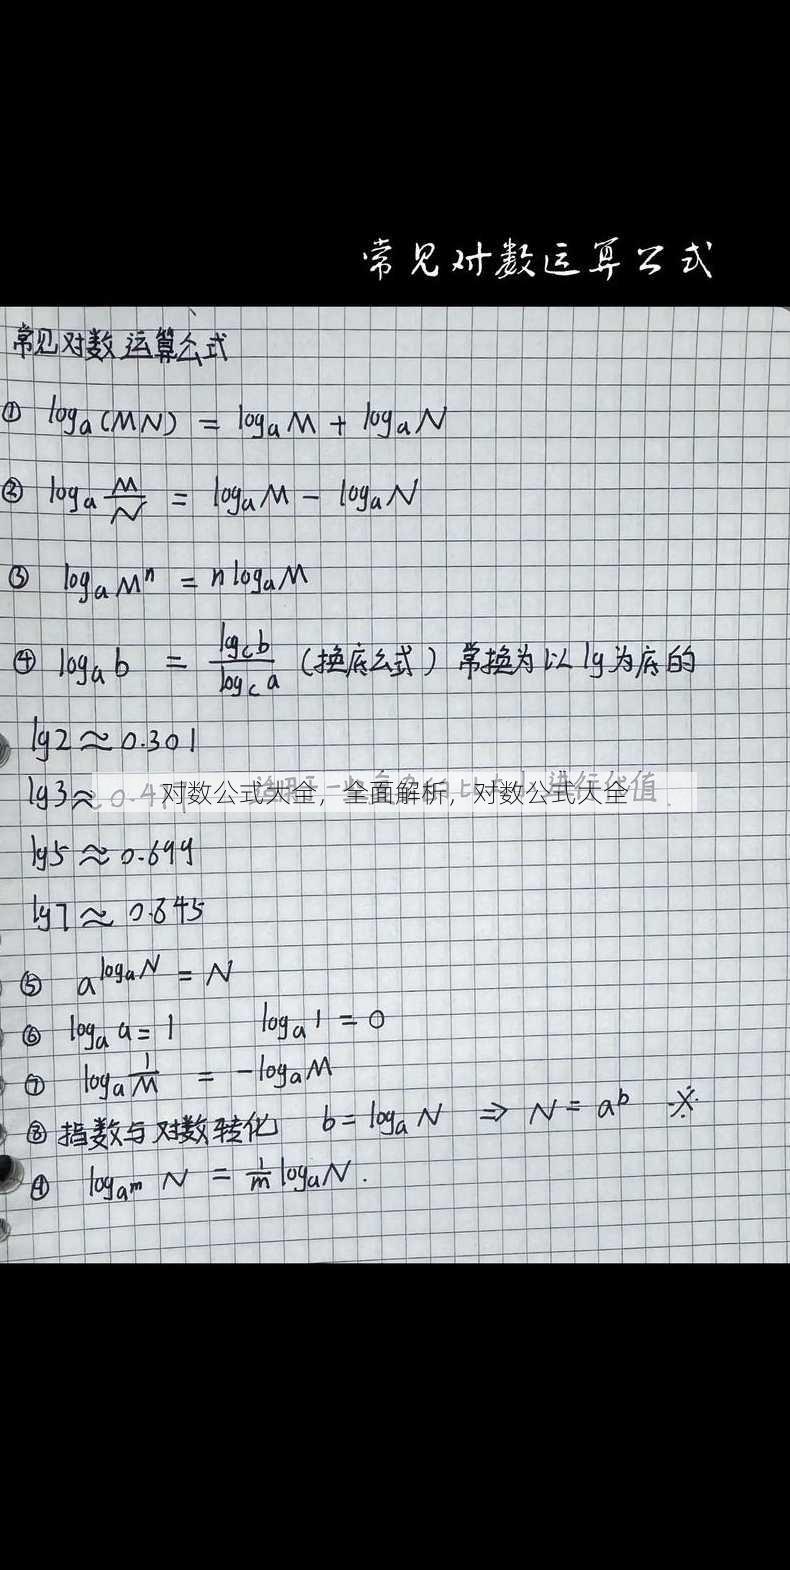 常见对数运算公式
常见对数运算公式
① logₐ(MN) = logₐM + logₐN
② logₐ M/N = logₐM - logₐN
③ logₐMⁿ = nlogₐM
④ logₐb = log_c b / log_c a (换底公式) 常换为以lg为底的
lg2≈0.301
lg3≈0.4
对数公式大全，全面解析，对数公式大全
进行估值.
lg5≈0.699
lg7≈0.845
⑤ a^(logₐN) = N
⑥ logₐa=1 logₐ1=0
⑦ logₐ 1/M = -logₐM
⑧ 指数与对数转化 b=logₐN ⇒ N=aᵇ ※
⑨ log_(a^m) N = 1/m logₐN.